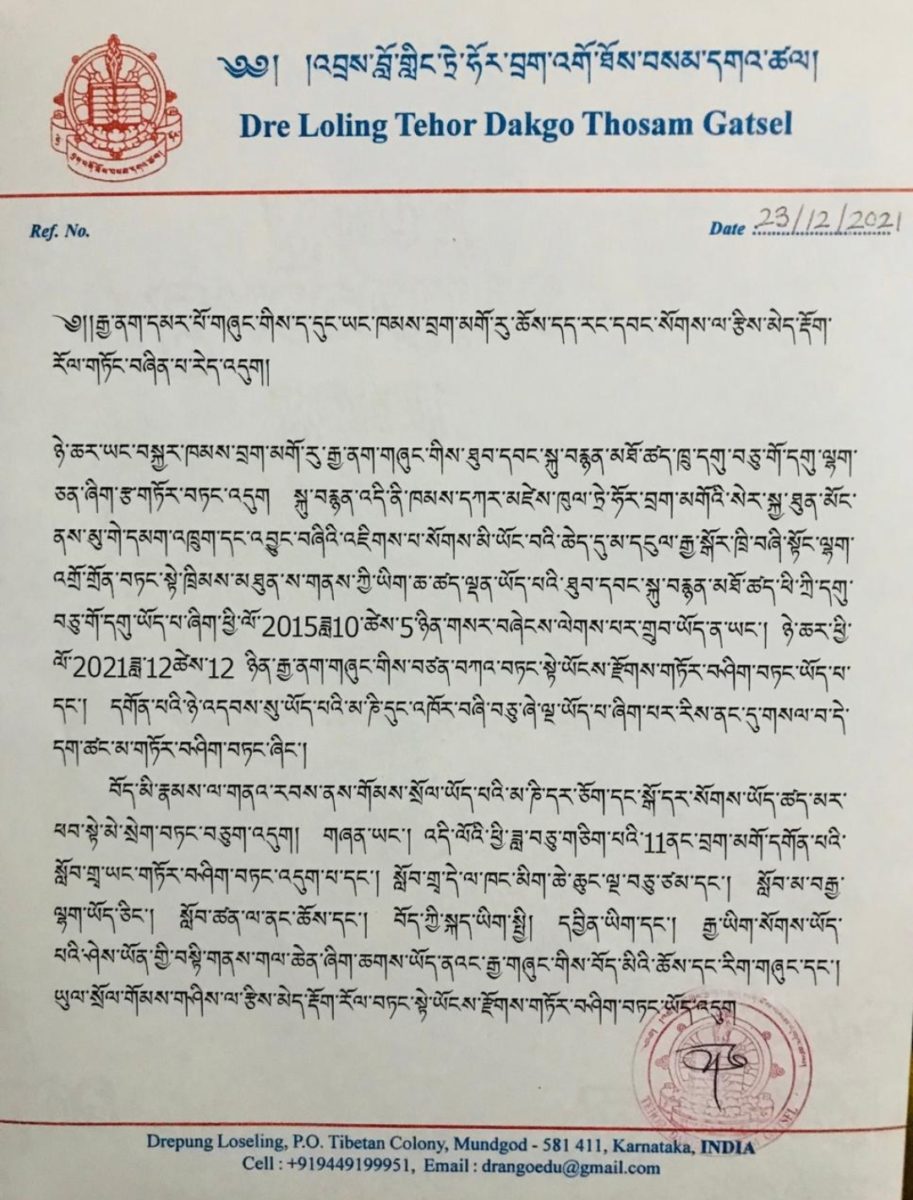 ༄༅། །འབྲས་བློ་གླིང་ཏྲེ་ཧོར་བྲག་འགོ་ཐོས་བསམ་དགའ་ཚལ།
Dre Loling Tehor Dakgo Thosam Gatsel
Ref. No.
Date 23/12/2021
༄།།རྒྱ་ནག་དམར་པོ་གཞུང་གིས་ད་དུང་ཡང་ཁམས་བྲག་མགོ་རུ་ཆོས་དད་རང་དབང་སོགས་ལ་རྩིས་མེད་རྡོག་
རོལ་གཏོང་བཞིན་པ་རེད་འདུག།
ཉེ་ཆར་ཡང་བསྐྱར་ཁམས་བྲག་མགོ་རུ་རྒྱ་ནག་གཞུང་གིས་ཐུབ་དབང་སྐུ་བརྙན་མཐོ་ཚད་ཁྲུ་དགུ་བཅུ་གོ་དགུ་ལྷག་
ཅན་ཞིག་རྩ་གཏོར་བཏང་འདུག སྐུ་བརྙན་འདི་ནི་ཁམས་དཀར་མཛེས་ཁུལ་ཏྲེ་ཧོར་བྲག་མགོའི་སེར་སྐྱ་ཐུན་མོང་
ནས་མུ་གེ་དམག་འཁྲུག་དང་འབྱུང་བཞིའི་འཇིགས་པ་སོགས་མི་ཡོང་བའི་ཆེད་དུ་མ་དངུལ་རྒྱ་སྒོར་ཁྲི་བཞི་སྟོང་ལྷག་
འགྲོ་གྲོན་བཏང་སྟེ་ཁྲིམས་མཐུན་ས་གནས་ཀྱི་ཡིག་ཆ་ཚད་ལྡན་ཡོད་པའི་ཐུབ་དབང་སྐུ་བརྙན་མཐོ་ཚད་ཕི་ཀྲི་དགུ་
བཅུ་གོ་དགུ་ཡོད་པ་ཞིག་ཕྱི་ལོ་2015ཟླ10་ཚེས་5་ཉིན་གསར་བཞེངས་ལེགས་པར་གྲུབ་ཡོད་ན་ཡང་། ཉེ་ཆར་ཕྱི་
ལོ་2021ཟླ་12ཚེས་12 ཉིན་རྒྱ་ནག་གཞུང་གིས་བཙན་བཀའ་བཏང་སྟེ་ཡོངས་རྫོགས་གཏོར་བཤིག་བཏང་ཡོད་པ་
དང་། དགོན་པའི་ཉེ་འདབས་སུ་ཡོད་པའི་མ་ཎི་དུང་འཁོར་བཞི་བཅུ་ཞེ་ལྔ་ཡོད་པ་ཞིག་པར་རིས་ནང་དུ་གསལ་བ་དེ་
དག་ཚང་མ་གཏོར་བཤིག་བཏང་ཞིང་།
བོད་མི་རྣམས་ལ་གནའ་རབས་ནས་གོམས་སྲོལ་ཡོད་པའི་མ་ཎི་དར་ཅོག་དང་སྒོ་དར་སོགས་ཡོད་ཚད་མར་
ཕབ་སྟེ་མེ་སྲེག་བཏང་བཅུག་འདུག། གཞན་ཡང་། འདི་ལོའི་ཕྱི་ཟླ་བཅུ་གཅིག་པའི་11ནང་བྲག་མགོ་དགོན་པའི་
སློབ་གྲྭ་ཡང་གཏོར་བཤིག་བཏང་འདུག་པ་དང་། སློབ་གྲྭ་དེ་ལ་ཁང་མིག་ཆེ་ཆུང་ལྔ་བཅུ་ཙམ་དང་། སློབ་མ་བརྒྱ་
ལྷག་ཡོད་ཅིང་། སློབ་ཚན་ལ་ནང་ཆོས་དང་། བོད་ཀྱི་སྐད་ཡིག་སྤྱི། དབྱིན་ཡིག་དང་། རྒྱ་ཡིག་སོགས་ཡོད་
པའི་ཤེས་ཡོན་གྱི་བསྟི་གནས་གལ་ཆེན་ཞིག་ཆགས་ཡོད་ནའང་རྒྱ་གཞུང་གིས་བོད་མིའི་ཆོས་དང་རིག་གཞུང་དང་།
ཡུལ་སྲོལ་གོམས་གཤིས་ལ་རྩིས་མེད་རྡོག་རོལ་བཏང་སྟེ་ཡོངས་རྫོགས་གཏོར་བཤིག་བཏང་ཡོད་འདུག
Drepung Loseling, P.O. Tibetan Colony, Mundgod - 581 411, Karnataka, INDIA
Cell : +919449199951, Email : drangoedu@gmail.com